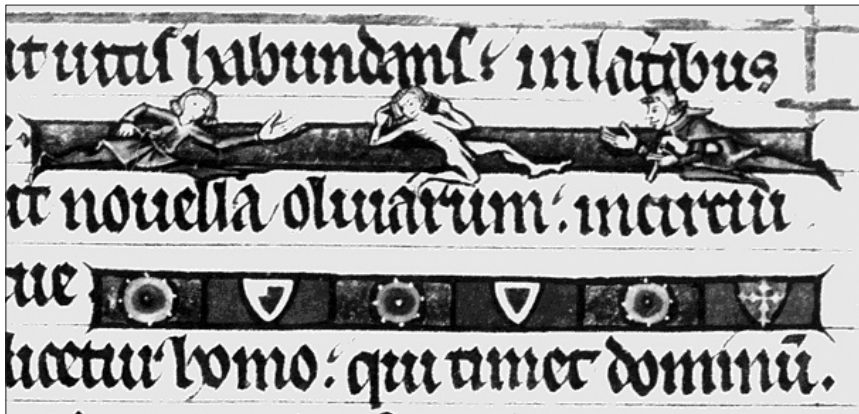 ut uitis habundans: in lat̾ibus
e.
ut nouella oliuarum: in
tue
dicetur homo: qui timet dominū.